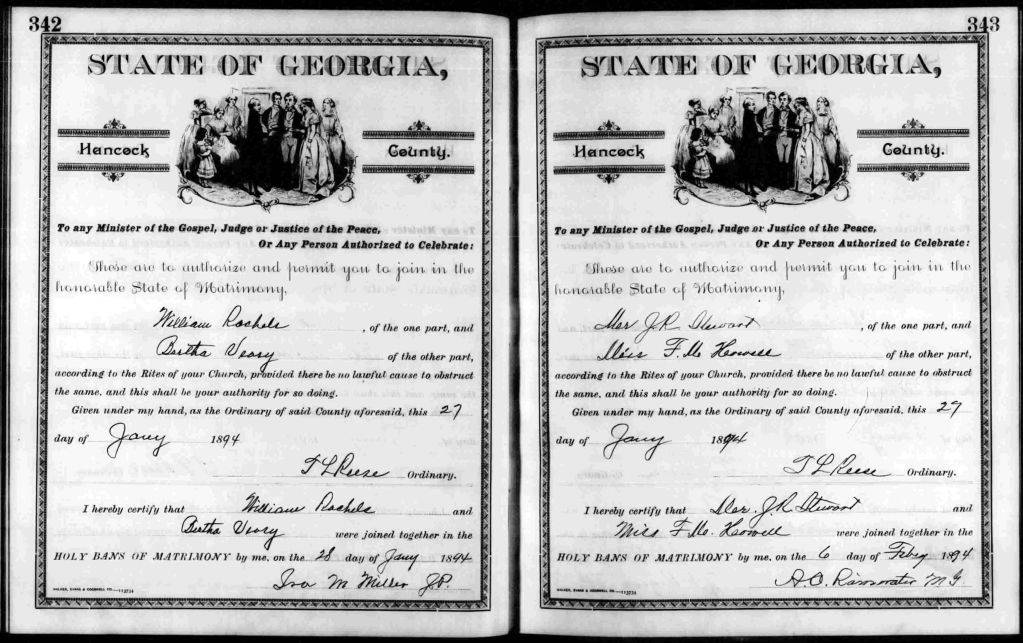 342
STATE OF GEORGIA,
Hancock County.
To any Minister of the Gospel, Judge or Justice of the Peace,
Or Any Person Authorized to Celebrate:
These are to authorize and permit you to join in the
honorable State of Matrimony,
William Rachels, of the one part, and
Bertha Ivory of the other part,
according to the Rites of your Church, provided there be no lawful cause to obstruct
the same, and this shall be your authority for so doing.
Given under my hand, as the Ordinary of said County aforesaid, this 27
day of Jany 1894
T L Reese Ordinary.
I hereby certify that William Rachels and
Bertha Ivory were joined together in the
HOLY BANS OF MATRIMONY by me, on the 28 day of Jany 1894
Ira M Miller J.P.
WALKER, EVANS & COGSWELL CO.—113734
343
STATE OF GEORGIA,
Hancock County.
To any Minister of the Gospel, Judge or Justice of the Peace,
Or Any Person Authorized to Celebrate:
These are to authorize and permit you to join in the
honorable State of Matrimony,
Mr J R Stewart, of the one part, and
Miss F. M. Howell of the other part,
according to the Rites of your Church, provided there be no lawful cause to obstruct
the same, and this shall be your authority for so doing.
Given under my hand, as the Ordinary of said County aforesaid, this 29
day of Jany 1894
T L Reese Ordinary.
I hereby certify that Mr. J. R Stewart and
Miss F. M. Howell were joined together in the
HOLY BANS OF MATRIMONY by me, on the 6 day of Feby 1894
A. C. M G
WALKER, EVANS & COGSWELL CO.—113734